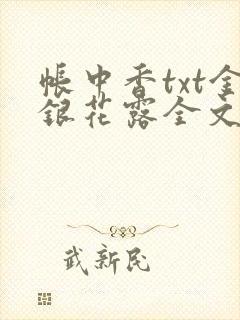 帐中香txt金
银花露全文
武新民